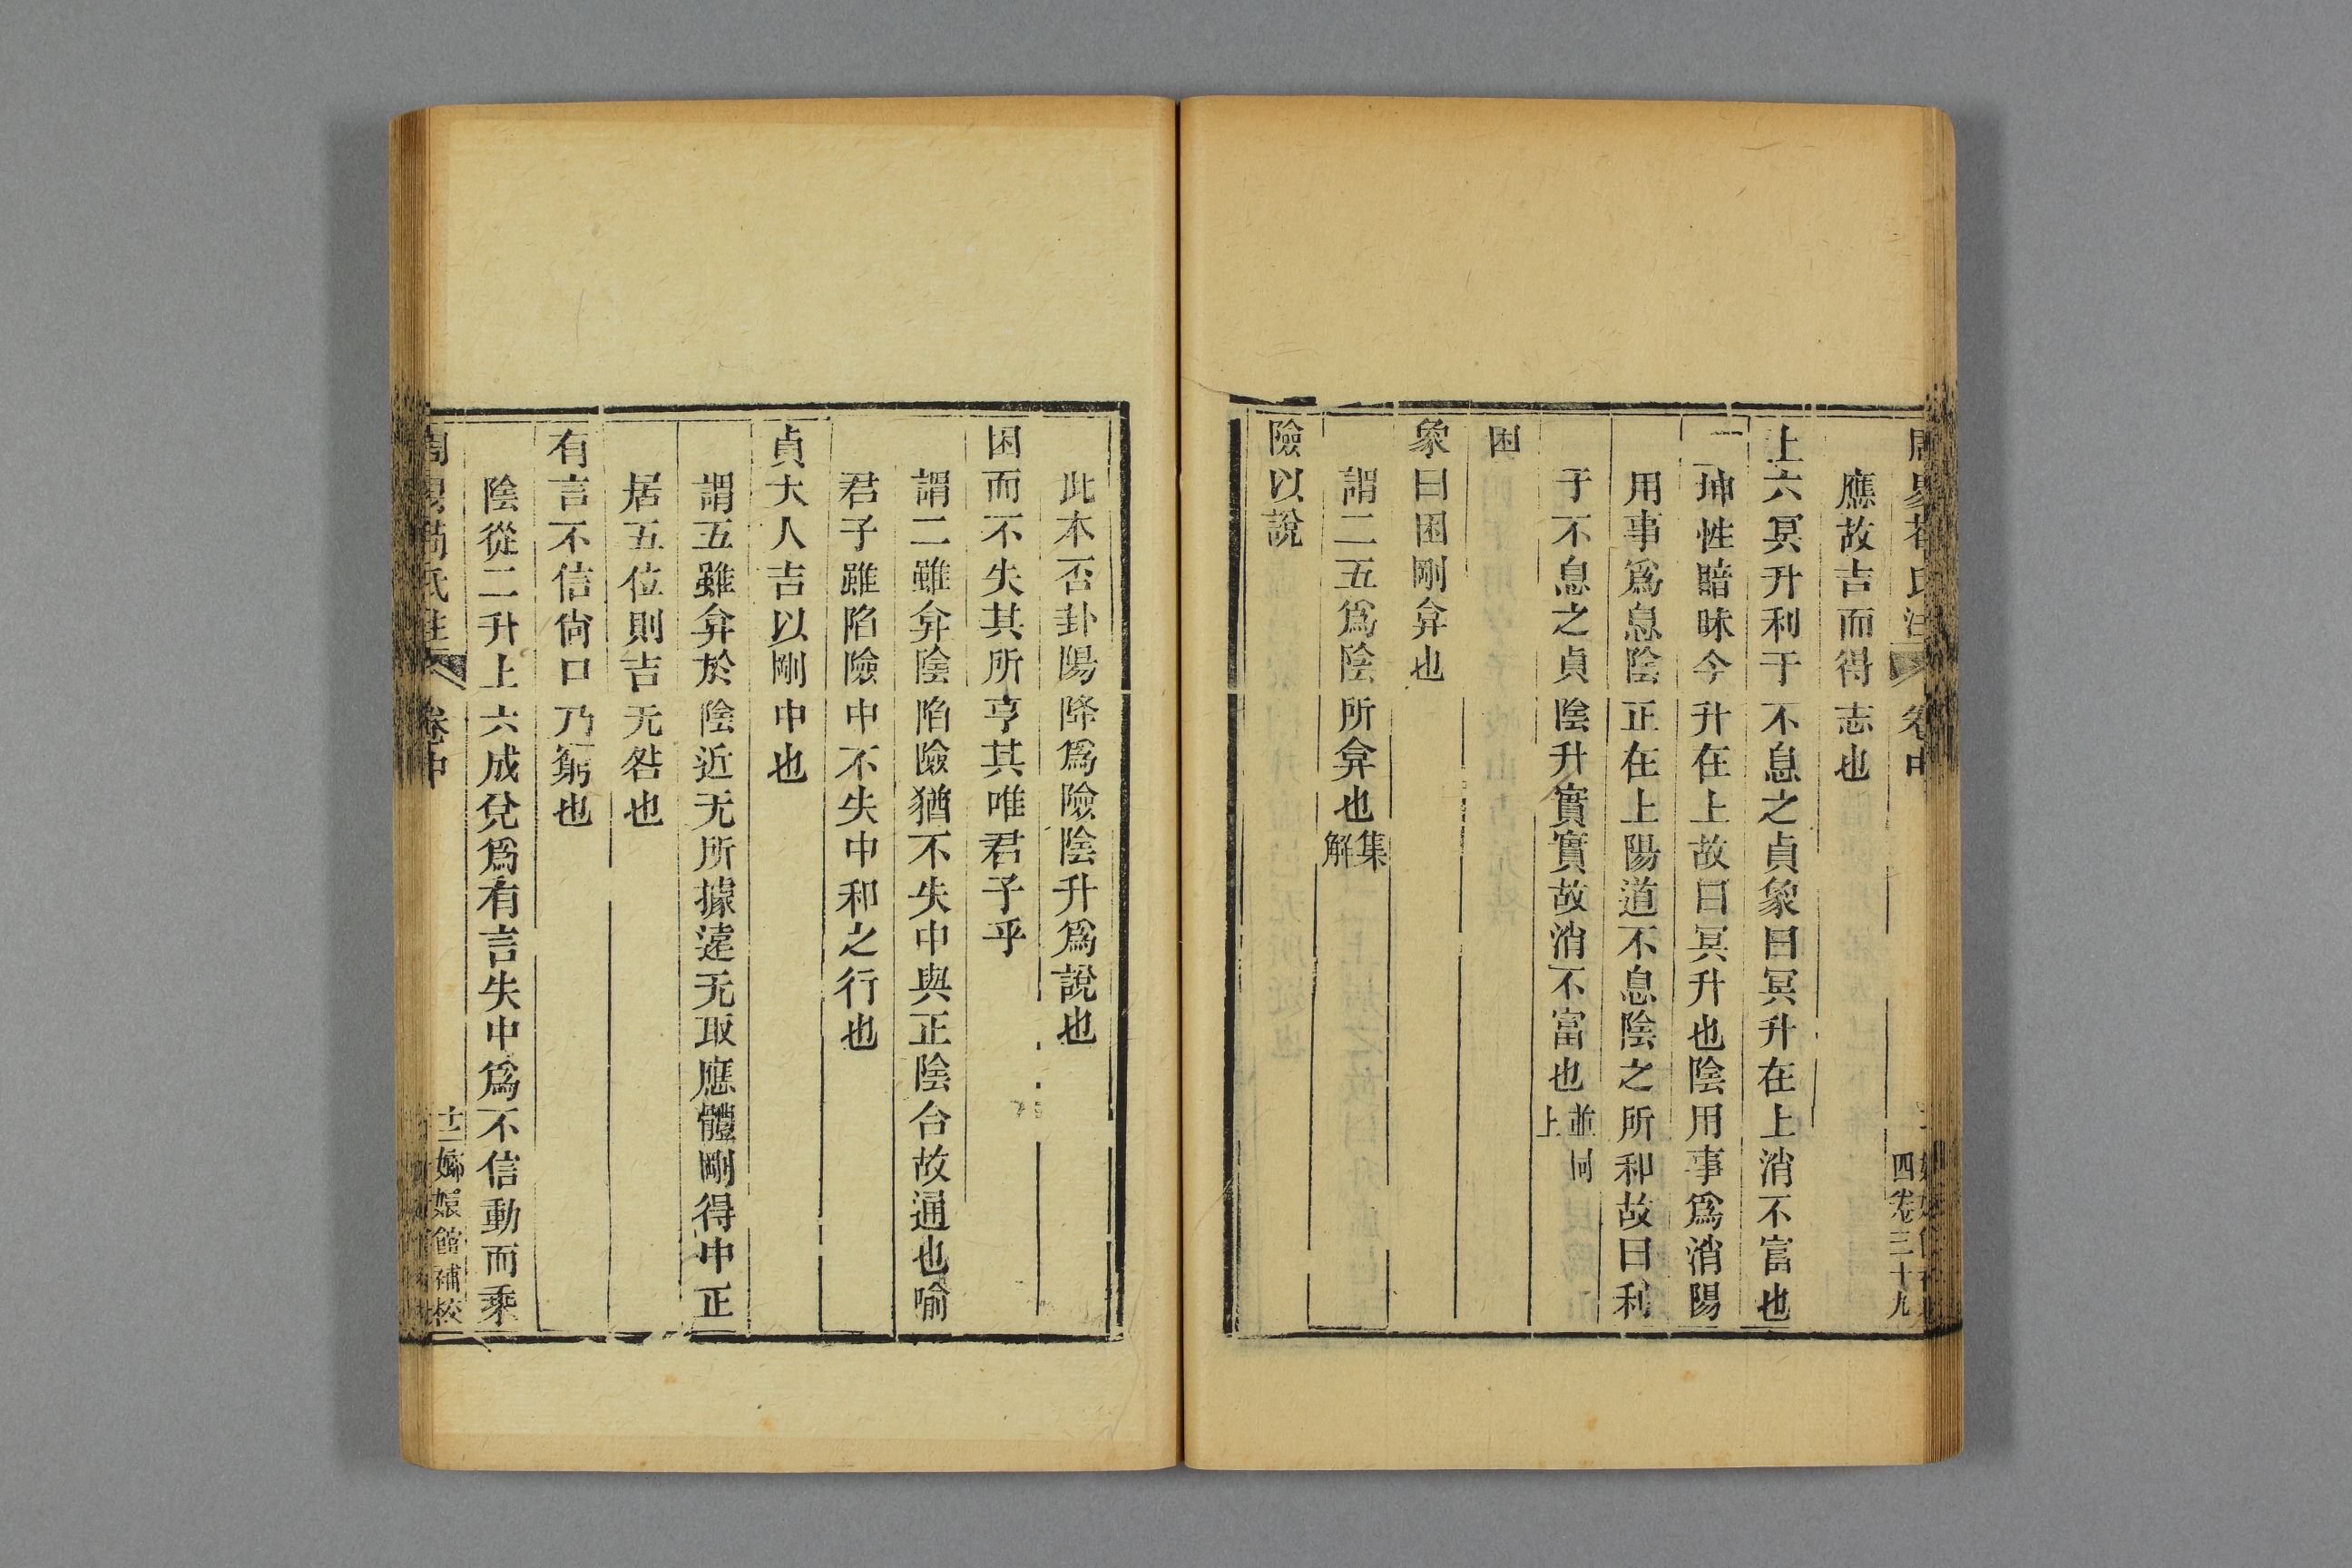 應故吉而得志也
上六冥升利于不息之貞象曰冥升在上消不富也
坤性暗昧今升在上故曰冥升也陰用事爲消陽
用事爲息陰正在上陽道不息陰之所和故曰利
于不息之貞陰升實實故消不富也並同上
困
彖曰困剛弇也
謂二五爲陰所弇也集解
險以說
此本否卦陽降爲險陰升爲說也
困而不失其所亨其唯君子乎
謂二雖弇陰陷險猶不失中與正陰合故通也喻
君子雖陷險中不失中和之行也
貞大人吉以剛中也
謂五雖弇於陰近无所據遠无取應體剛得中正
居五位則吉无咎也
有言不信尙口乃窮也
陰從二升上六成兌爲有言失中爲不信動而乘
卷中
嫏嬛館補校
四卷三十九